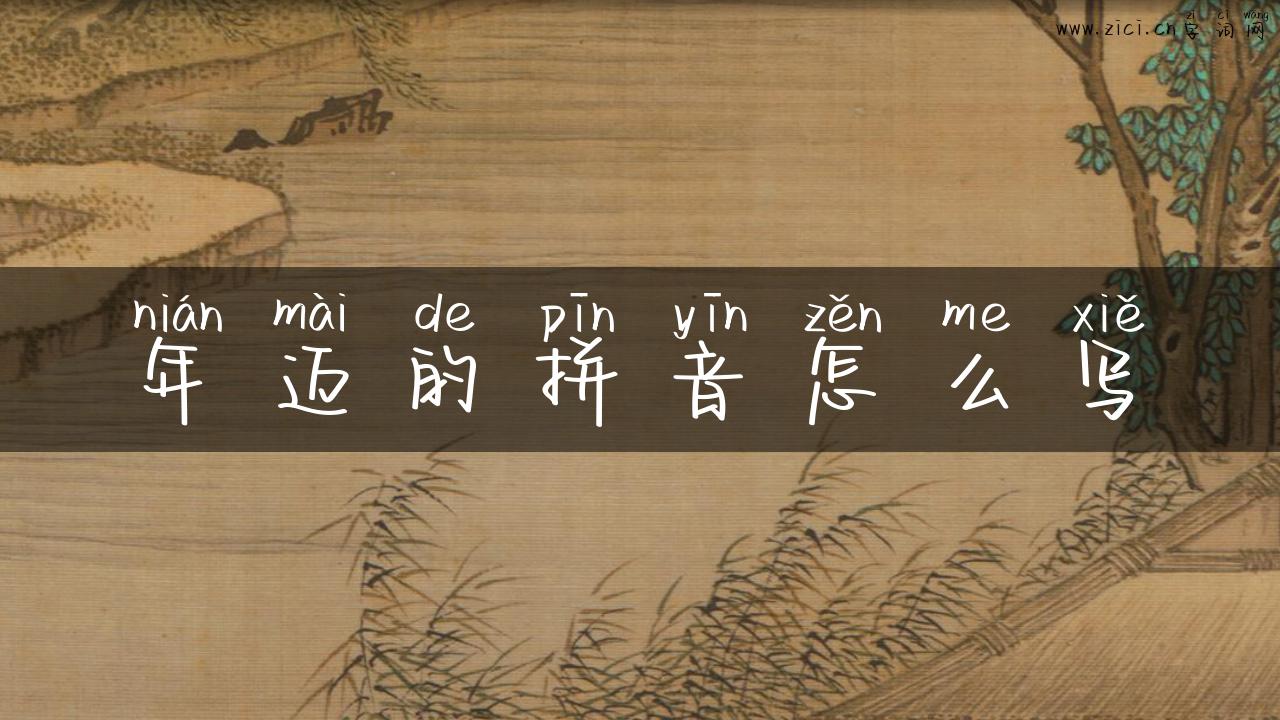 zì cí wǎng
www.zici.cn字词网
nián mài de pīn yīn zěn me xiě
年迈的拼音怎么写